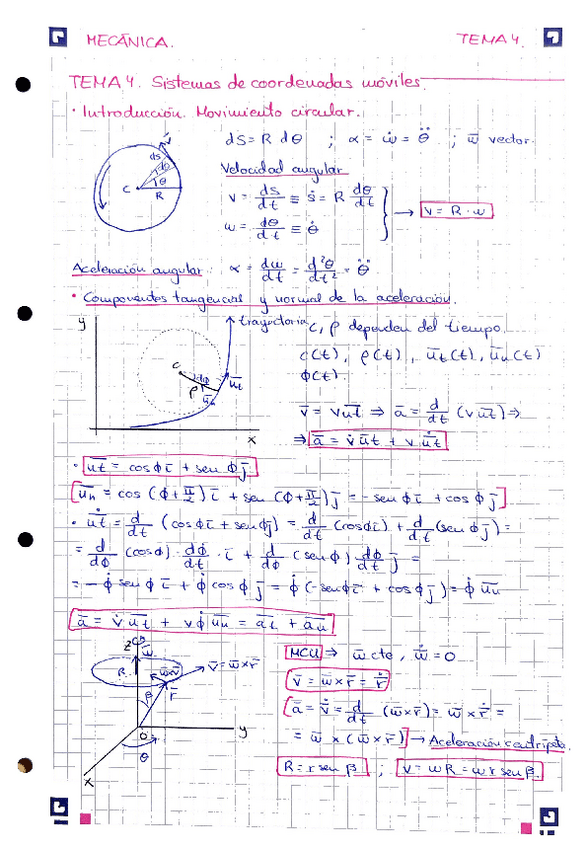 MECÁNICA. TEMA 4.
TEMA 4. Sistemas de coordenadas móviles.
· Introducción. Movimiento circular.
dS = R dθ ; α = ω̇ = θ̈ ; ω̄ vector.
Velocidad angular
v = ds/dt ≡ ṡ = R dθ/dt
ω = dθ/dt ≡ θ̇
→ v = R · ω
v̄ ds dθ θ C R
Aceleración angular α = dω/dt = d²θ/dt² = θ̈
· Componentes tangencial y normal de la aceleración.
y trayectoria c dφ ρ ūn ūt x
C, ρ dependen del tiempo
c(t), ρ(t), ūt(t), ūn(t)
φ(t).
v̄ = v ūt ⇒ ā = d/dt (v ūt) ⇒
⇒ ā = v̇ ūt + v u̇̄t
· ūt = cos φ ī + sen φ j̄
ūn = cos (φ + π/2) ī + sen (φ + π/2) j̄ = - sen φ ī + cos φ j̄
· u̇̄t = d/dt (cos φ ī + sen φ j̄) = d/dt (cos φ ī) + d/dt (sen φ j̄) =
= d/dφ (cos φ) · dφ/dt · ī + d/dφ (sen φ) dφ/dt j̄ =
= - φ̇ sen φ ī + φ̇ cos φ j̄ = φ̇ (- sen φ ī + cos φ j̄) = φ̇ ūn
ā = v̇ ūt + v φ̇ ūn = āt + ān
z ω̄ R ω̄×v̄ v̄ = ω̄ × r̄ β r̄ O y θ x
MCU ⇒ ω̄ cte, ω̇̄ = 0
v̄ = ω̄ × r̄ = ṙ̄
ā = v̇̄ = d/dt (ω̄ × r̄) = ω̄ × ṙ̄ =
= ω̄ × (ω̄ × r̄) → Aceleración centrípeta
R = r sen β ; v = ωR = ω r sen β.